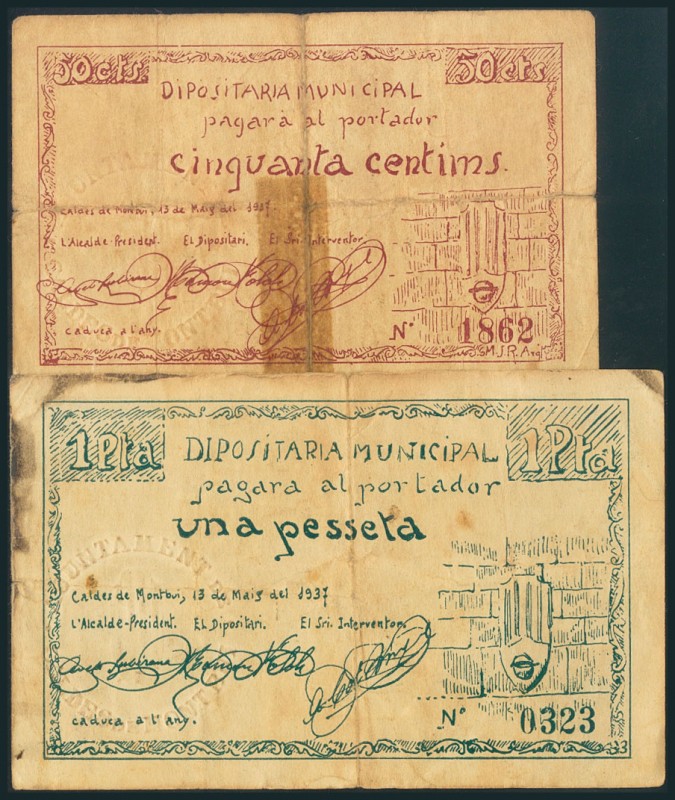 50cts 50cts
DIPOSITARIA MUNICIPAL
pagarà al portador
cinquanta centims.
Caldes de Montbui, 13 de Maig del 1937.
L'Alcalde-President. El Dipositari. El Sri. Interventor
caduca a l'any.
Nº 1862
1Pta 1Pta
DIPOSITARIA MUNICIPAL
pagara al portador
una pesseta
AJUNTAMENT
Caldes de Montbui, 13 de Maig del 1937
L'Alcalde-President. EL Dipositari. El Sri. Interventor
caduca a l'any.
Nº 0323